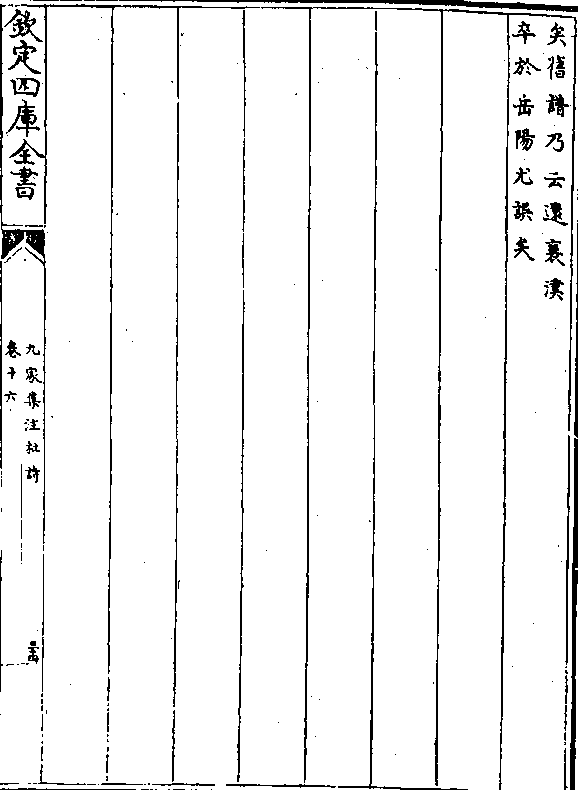 矣舊譜乃云還襄漢
卒於岳陽尤誤矣
欽定四庫全書
九家集注杜詩
卷十六